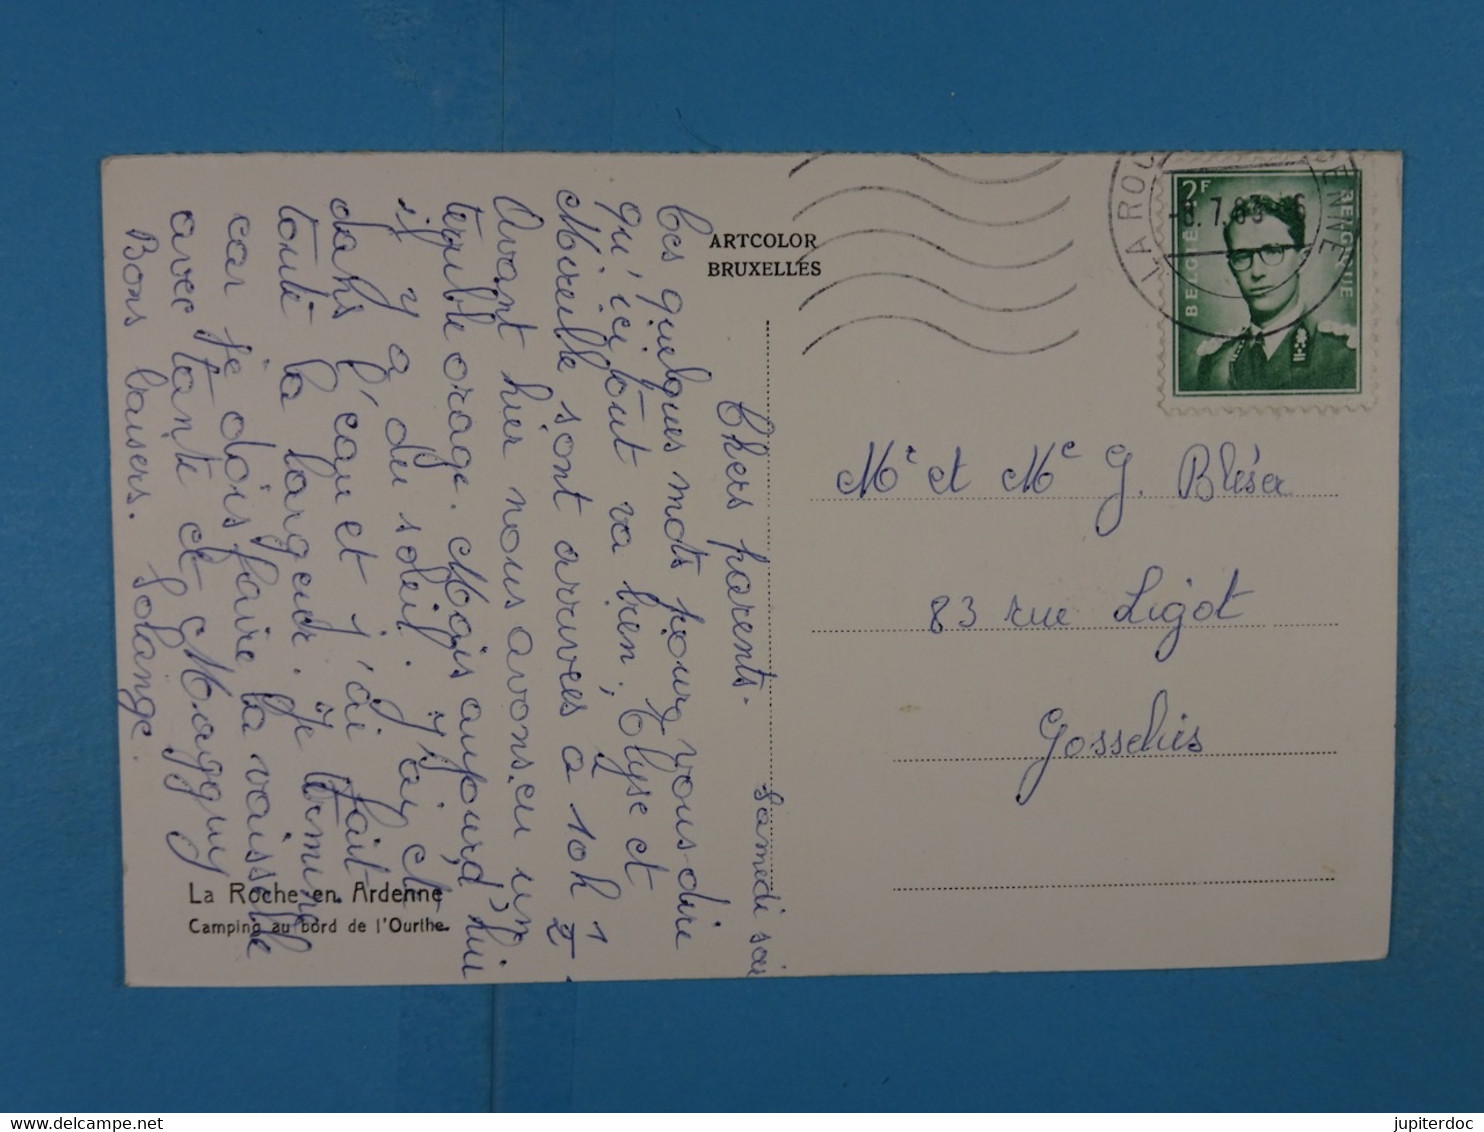 Samedi soir
Chers parents.
Ces quelques mots pour vous dire
qu'ici tout va bien, Elyse et
Mireille sont arrivées à 10h 1/2
Avant hier nous avons eu un
terrible orage. Mais aujourd'hui
il y a du soleil. J'ai été
dans l'eau et j'ai fait
toute la largeur. Je termine
car je dois faire la vaisselle
avec tante et Magguy
Bons baisers. Solange.
ARTCOLOR
BRUXELLES
La Roche en Ardenne
Camping au bord de l'Ourthe
LA ROC ENNE
-8.7.63
2F
BELGIË
BELGIQUE
Mr et Me G. Bléser
83 rue Ligot
Gosselies
jupiterdoc
www.delcampe.net